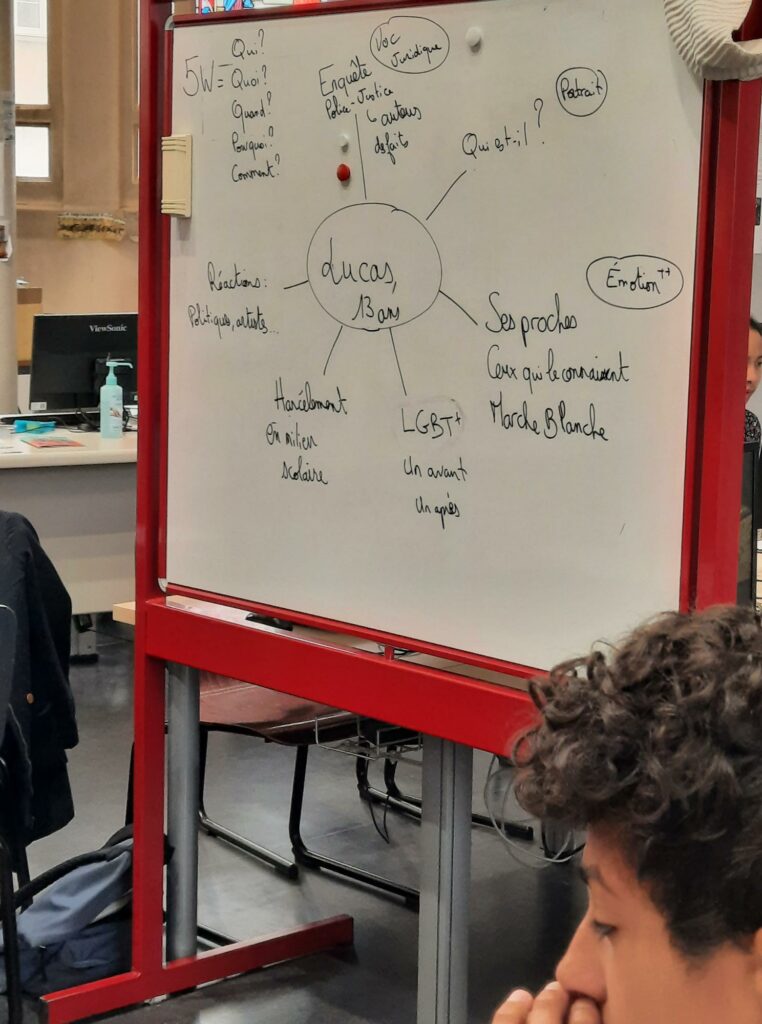 5W=
Qui?
Quoi?
Quand?
Pourquoi?
Comment?
Enquête
Police-Justice
↳ autour
des faits
Voc
Juridique
Qui est-il?
Portrait
Lucas,
13 ans
Réactions:
Politiques, artistes...
Harcèlement
en milieu
scolaire
LGBT+
Un avant
Un après
Émotion++
Ses proches
Ceux qui le connaissent
Marche Blanche
ViewSonic